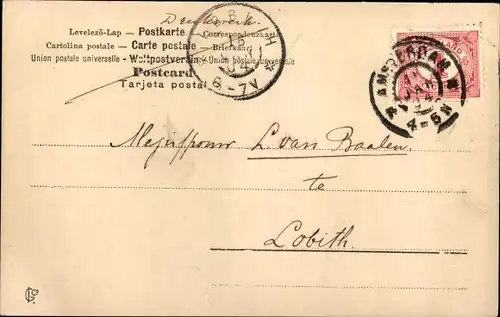 Drukwerk.
Levelező-Lap — Postkarte — Correspondenzkarte
Cartolina postale — Carte postale — Briefkaart
Union postale universelle — Weltpostverein — Union postale universelle
Postcard
Tarjeta postal
LOBITH
04
6-7V
AMSTERDAM
JAN
04
4-5N
Mejuffrouw L. van Baalen.
te
Lobith.